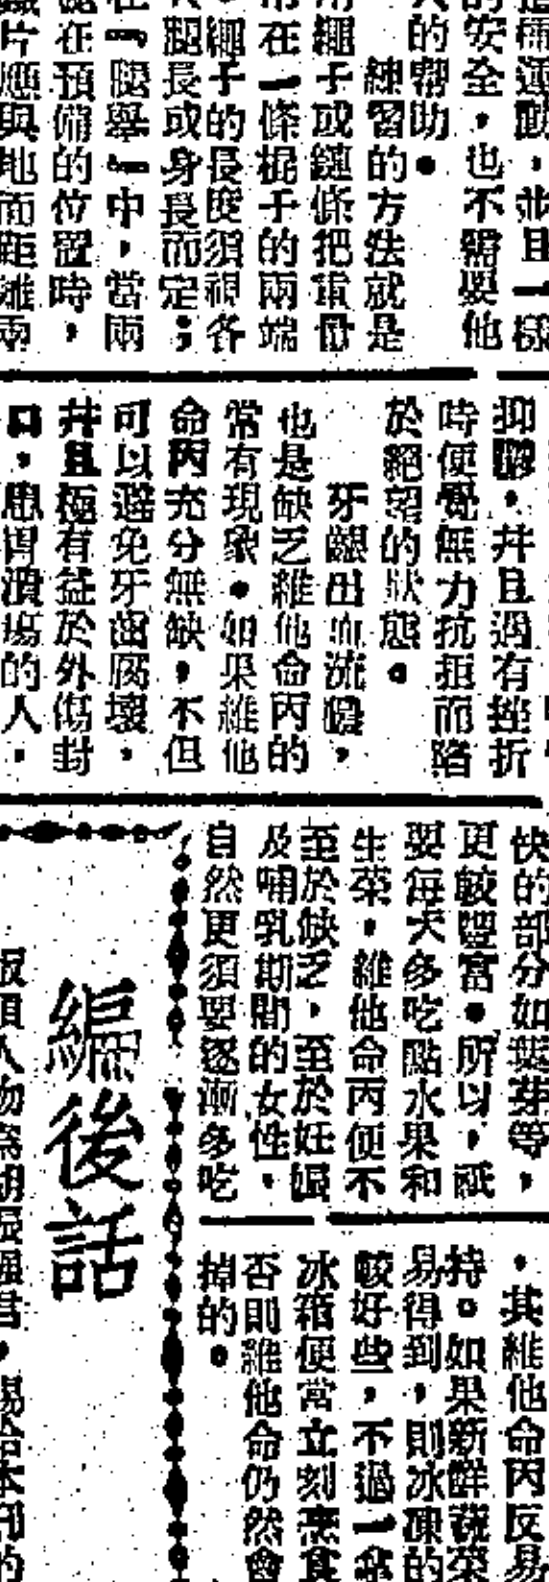 痛運動，並且一樣
的安全，也不需要他
人的幫助。
練習的方法就是
用繩子或鏈條把重量
吊在一條棍子的兩端
。繩子的長度須視各
人腿長或身長而定；
在「腿舉」中，當兩
腿在預備的位置時，
鐵片應與地面距離兩
抑鬱，并且遇有挫折
時便覺無力抗拒而陷
於絕望的狀態。
牙齦出血流膿，
也是缺乏維他命丙的
常有現象。如果維他
命丙充分無缺，不但
可以避免牙齒腐壞，
并且極有益於外傷封
口，患胃潰瘍的人，
快的部分如葉芽等，
更較豐富。所以，祗
要每天多吃點水果和
生菜，維他命丙便不
至於缺乏，至於妊娠
及哺乳期間的女性，
自然更須要逐漸多吃
，其維他命丙反易
持。如果新鮮蔬菜
易得到，則冰凍的
較好些，不過一拿
冰箱便當立刻烹食
否則維他命仍然會
掉的。
編後話
封面人物為胡振強君，賜給本刊的